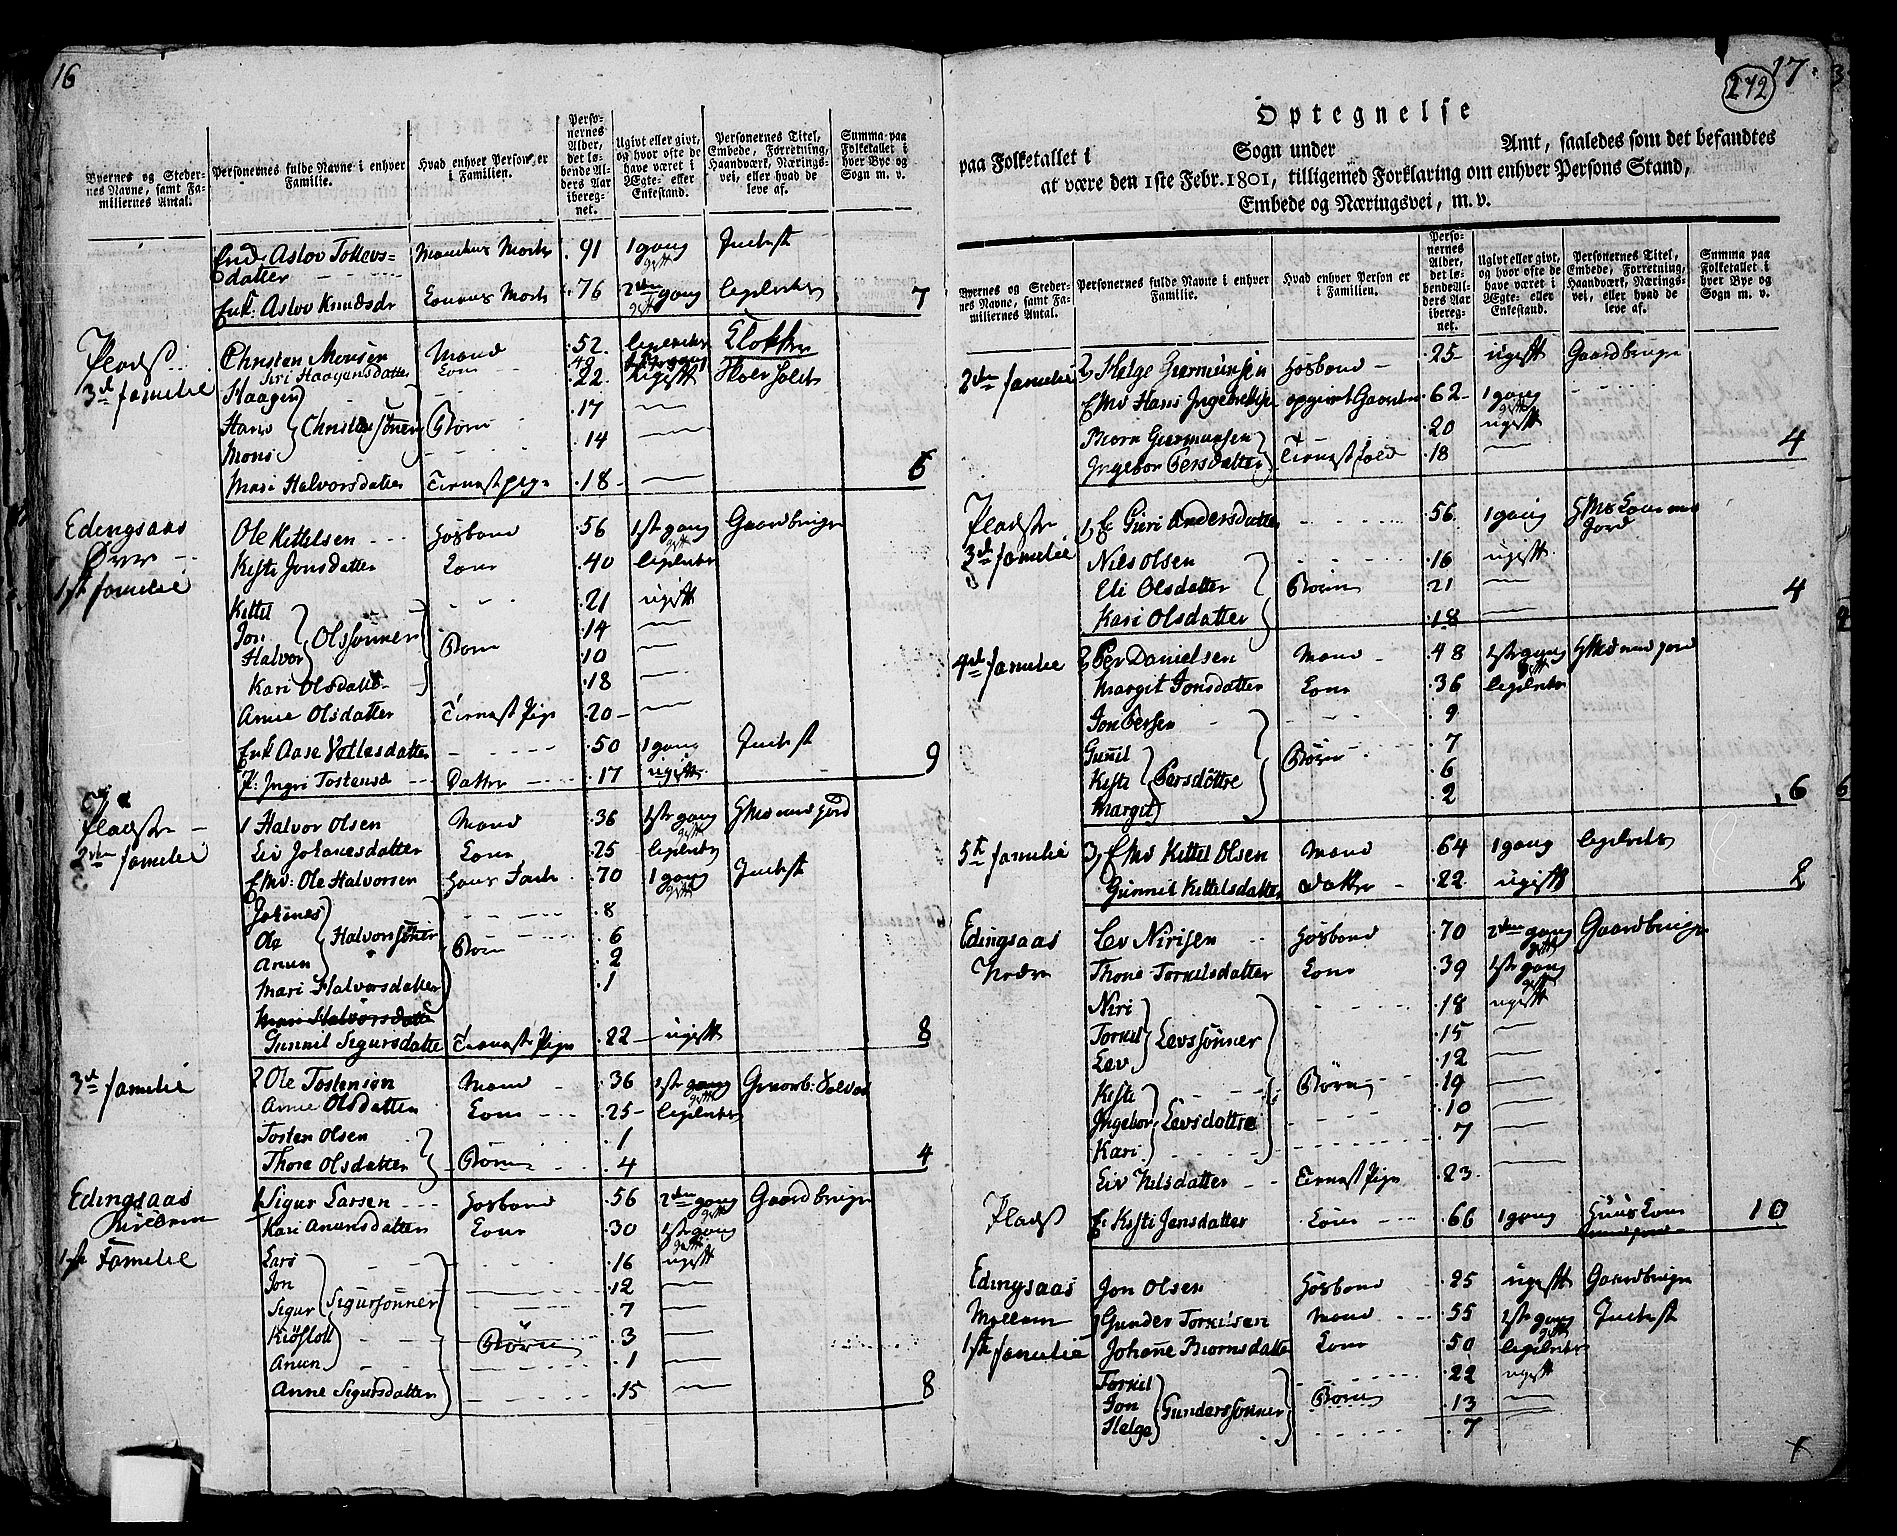 16
Byernes og Steder-
nes Navne, samt Fa-
miliernes Antal.
Personernes fulde Navne i enhver
Familie.
Hvad enhver Person er
i Familien.
Perso-
nernes
Alder,
det lø-
bende Al-
ders Aar
iberegnet.
Ugivt eller givt,
og hvor ofte de
have været i
Ægte- eller
Enkestand.
Personernes Titel,
Embede, Forretning,
Haandværk, Nærings-
vei, eller hvad de
leve af.
Summa paa
Folketallet i
hver Bye og
Sogn m. v.
Enk: Aslov Tollevs= Mandens Moder 91 1 gang gift Inderst
datter
Enk: Aslov Knudsdr Konens Moder 76 2den gang gift ligeledes 7
Pladst Christen Monsen Mand 52 ligeledes Klokker
Siri Haagensdatter Kone
3de familie Haagen 22 ugift
Hans Christensønner Børn 17
Mons 14
Mari Halvorsdatter Tienestpige 18 6
Edingsaas Ole Kittelsen Hosbond 56 1ste gang gift Gaardbruger
Øvre Kisti Jonsdatter Kone 40 ligeledes
1ste familie
Kittel 21 ugift
Jon Olssønner 14
Halvor Børn 10
Kari Olsdatter 18
Anne Olsdatter Tienest Pige 20
Enk Aase Vetlesdatter 50 1 gang Inderst
F: Ingri Tostensd Datter 17 ugift 9
Pladser 1 Halvor Olsen Mand 36 1ste gang gift HMd med Jord
2den familie Liv Johanesdatter Kone 25 ligeledes
EMd: Ole Halvorsen Hans Fader 70 1 gang gift Inderst
Johanes 8
Ole Halvorssønner 6
Anun Børn 2
Mari Halvorsdatter 1
Mari Halvorsdatter
Gunnil Sigursdatter Tienest Pige 22 ugift 8
3de familie 2 Ole Tostensøn Mand 36 1ste gang gift
Anne Olsdatter Kone 25 ligeledes
Tosten Olsen 1
Thore Olsdatter Børn 4 4
Edingsaas 1 Sigur Larsen Hosbond 56 2den gang gift Gaardbruger
Kari Anunsdatter Kone 30 1ste gang gift
1ste Familie Lars 16 ugift
Jon 12
Sigur Sigurssønner 7
Kiøstoll Børn 3
Anun 1
Anne Sigursdatter 15 8
242
17
Optegnelse
paa Folketallet i Sogn under Amt, saaledes som det befandtes
at være den 1ste Febr. 1801, tilligemed Forklaring om enhver Persons Stand,
Embede og Næringsvei, m. v.
Byernes og Steder-
nes Navne, samt Fa-
miliernes Antal.
Personernes fulde Navne i enhver
Familie.
Hvad enhver Person er
i Familien.
Perso-
nernes
Alder,
det lø-
bende Al-
ders Aar
iberegnet.
Ugivt eller givt,
og hvor ofte de
have været i
Ægte- eller
Enkestand.
Personernes Titel,
Embede, Forretning,
Haandværk, Nærings-
vei, eller hvad de
leve af.
Summa paa
Folketallet i
hver Bye og
Sogn m. v.
2den familie 2 Helge Giermunsen Hosbond 25 ugift Gaardbruger
EMd Hans 62 1 gang gift
Biørn Giermunsen 20 ugift
Ingebor Persdatter Tienestfolk 18 4
Pladser 1 E Guri Andersdatter 56 1 gang
Jord
3de familie Nils Olsen 16 ugift
Eli Olsdatter Børn 21
Kari Olsdatter 18 4
4de familie 2 Per Danielsen Mand 48 1ste gang gift HMd med jord
Margit Jonsdatter Kone 36 ligeledes
Jon Persen 9
Gunil 7
Kisti Persdøttre Børn 6
Margit 2 6
5te familie 3 EMd Kittel Olsen Mand 64 1 gang ligeledes
Gunnil Kittelsdatter datter 22 ugift 2
Edingsaas Lev Nirisen Hosbond 70 2den gang gift Gaardbruger
Nedre Thone Torkilsdatter Kone 39 1ste gang gift
Niri 18 ugift
Torkil Levssønner 15
Lev 12
Kisti Børn 19
Ingebor Levsdøttre 10
Kari 7
Liv Nilsdatter Tienest Pige 23
Pladst E: Kisti Jensdatter Kone 66 1 gang Huus Kone 10
Edingsaas Jon Olsen Hosbond 25 ugift Gaardbruger
Mellem 1 Gunder Torkilsen Mand 55 1ste gang gift Inderst
1ste familie Johane Biørnsdatter Kone 50 ligeledes
Torkil 22 ugift
Jon Gunderssønner Børn 13
Helge 7